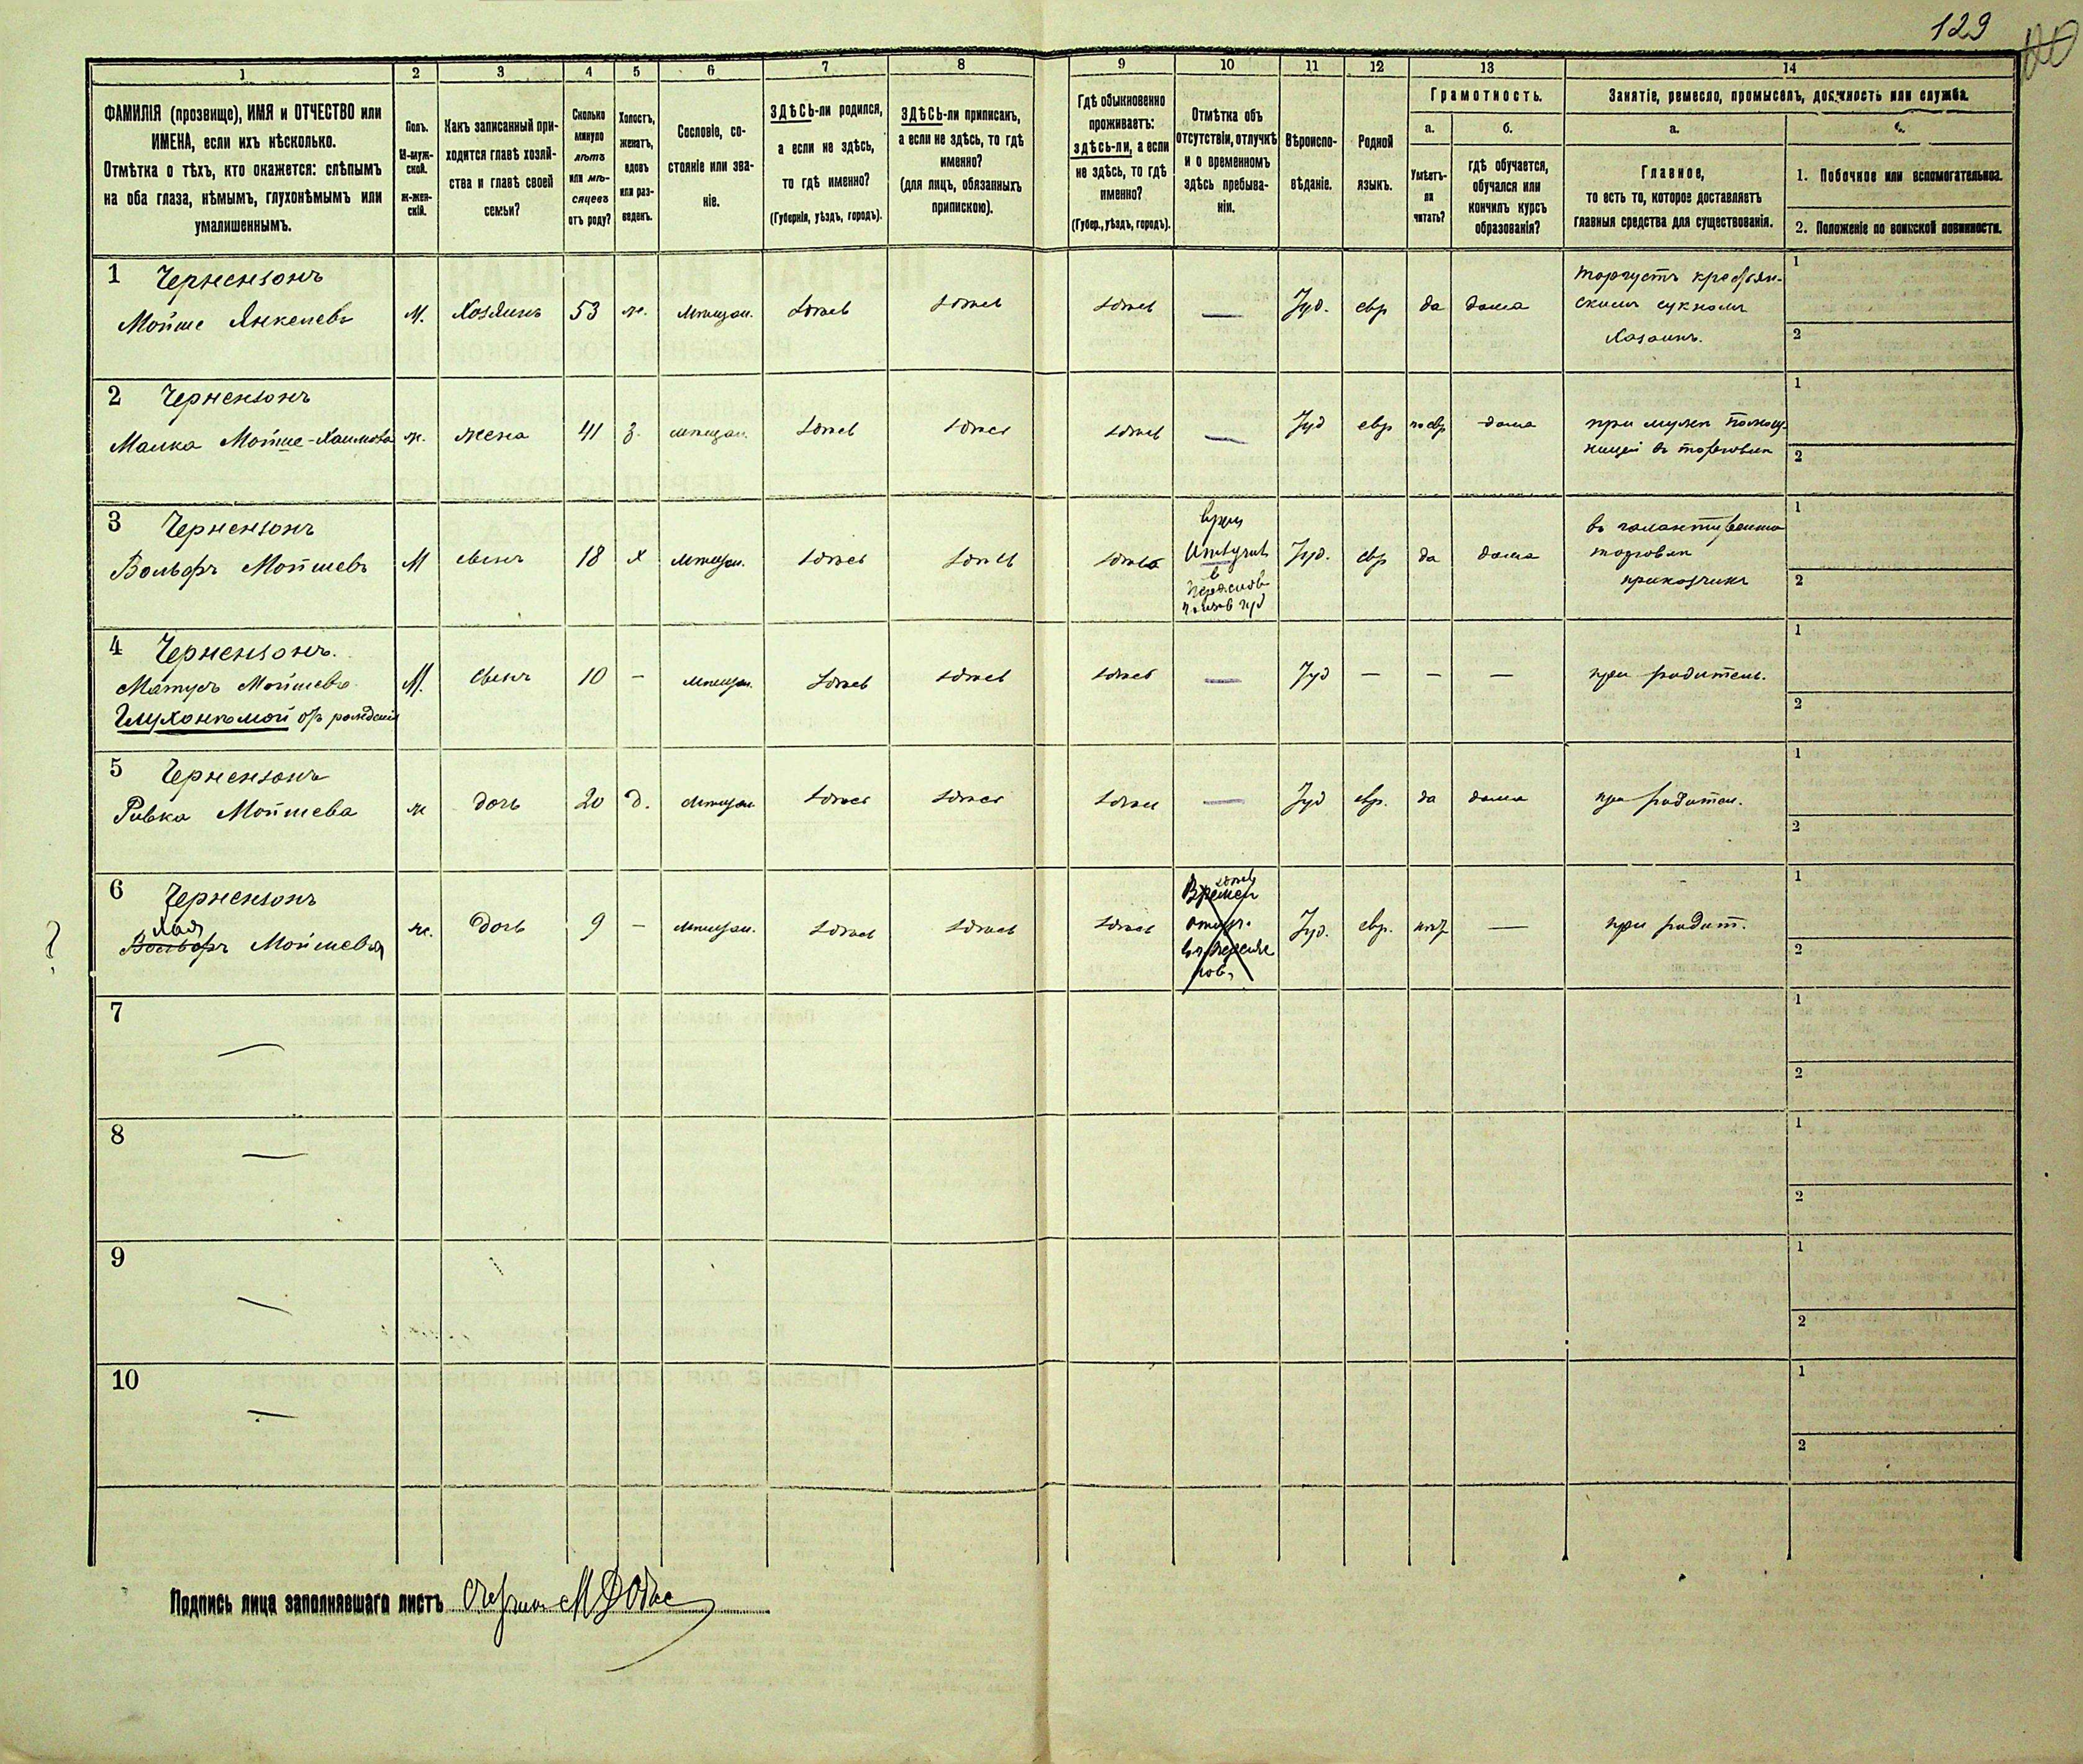 129
1 2 3 4 5 6 7 8 9 10 11 12 13 14
ФАМИЛІЯ (прозвище), ИМЯ и ОТЧЕСТВО или
ИМЕНА, если ихъ нѣсколько.
Отмѣтка о тѣхъ, кто окажется: слѣпымъ
на оба глаза, нѣмымъ, глухонѣмымъ или
умалишеннымъ.
Полъ.
М-муж-
ской.
Ж-жен-
скій.
Какъ записанный при-
ходится главѣ хозяй-
ства и главѣ своей
семьи?
Сколько
минуло
лѣтъ
или мѣ-
сяцевъ
отъ роду?
Холостъ,
женатъ,
вдовъ
или раз-
веденъ.
Сословіе, со-
стояніе или зва-
ніе.
ЗДѢСЬ-ли родился,
а если не здѣсь,
то гдѣ именно?
(Губернія, уѣздъ, городъ).
ЗДѢСЬ-ли приписанъ,
а если не здѣсь, то гдѣ
именно?
(для лицъ, обязанныхъ
припискою).
Гдѣ обыкновенно
проживаетъ:
здѣсь-ли, а если
не здѣсь, то гдѣ
именно?
(Губер., уѣздъ, городъ).
Отмѣтка объ
отсутствіи, отлучкѣ
и о временномъ
здѣсь пребыва-
ніи.
Вѣроиспо-
вѣданіе.
Родной
языкъ.
Грамотность.
а.
Умѣетъ-
ли
читать?
б.
гдѣ обучается,
обучался или
кончилъ курсъ
образованія?
Занятіе, ремесло, промыселъ, должность или служба.
а.
Главное,
то есть то, которое доставляетъ
главныя средства для существованія.
1. Побочное или вспомогательное.
2. Положеніе по воинской повинности.
1 Чернензонъ
Мойше Янкелевъ М. Хозяинъ 53 ж. Мѣщан. здѣсь здѣсь здѣсь — Іуд. евр да дома
Торгуетъ крестьян-
скимъ сукномъ
Хозаинъ.
1
2
2 Чернензонъ
Малка Мойше-Хаимова ж. жена 41 з. мѣщан. здѣсь здѣсь здѣсь — Іуд евр по евр дома
при мужѣ помощ-
ницей въ торговли
1
2
3 Чернензонъ
Вольфъ Мойшевъ М сынъ 18 х Мѣщан. здѣсь здѣсь здѣсь
Іуд. евр да дома
въ галантерейно
торговли
приказчикъ
1
2
4 Чернензонъ.
Матусъ Мойшевъ
Глухонѣмой отъ рожденія
М. сынъ 10 — мѣщан. здѣсь здѣсь здѣсь — Іуд — — — при родитель.
1
2
5 Чернензонъ
Ривка Мойшева ж дочь 20 д. Мѣщан здѣсь здѣсь здѣсь — Іуд евр. да дома при родител.
1
2
6 Чернензонъ
Хая
Вольфъ Мойшевъя ж. дочь 9 — Мѣщан. здѣсь здѣсь здѣсь
Времен
отлуч.
Іуд. евр. — при родит.
1
2
7 —
1
2
8 —
1
2
9 —
1
2
10 —
1
2
Подпись лица заполнявшаго листъ